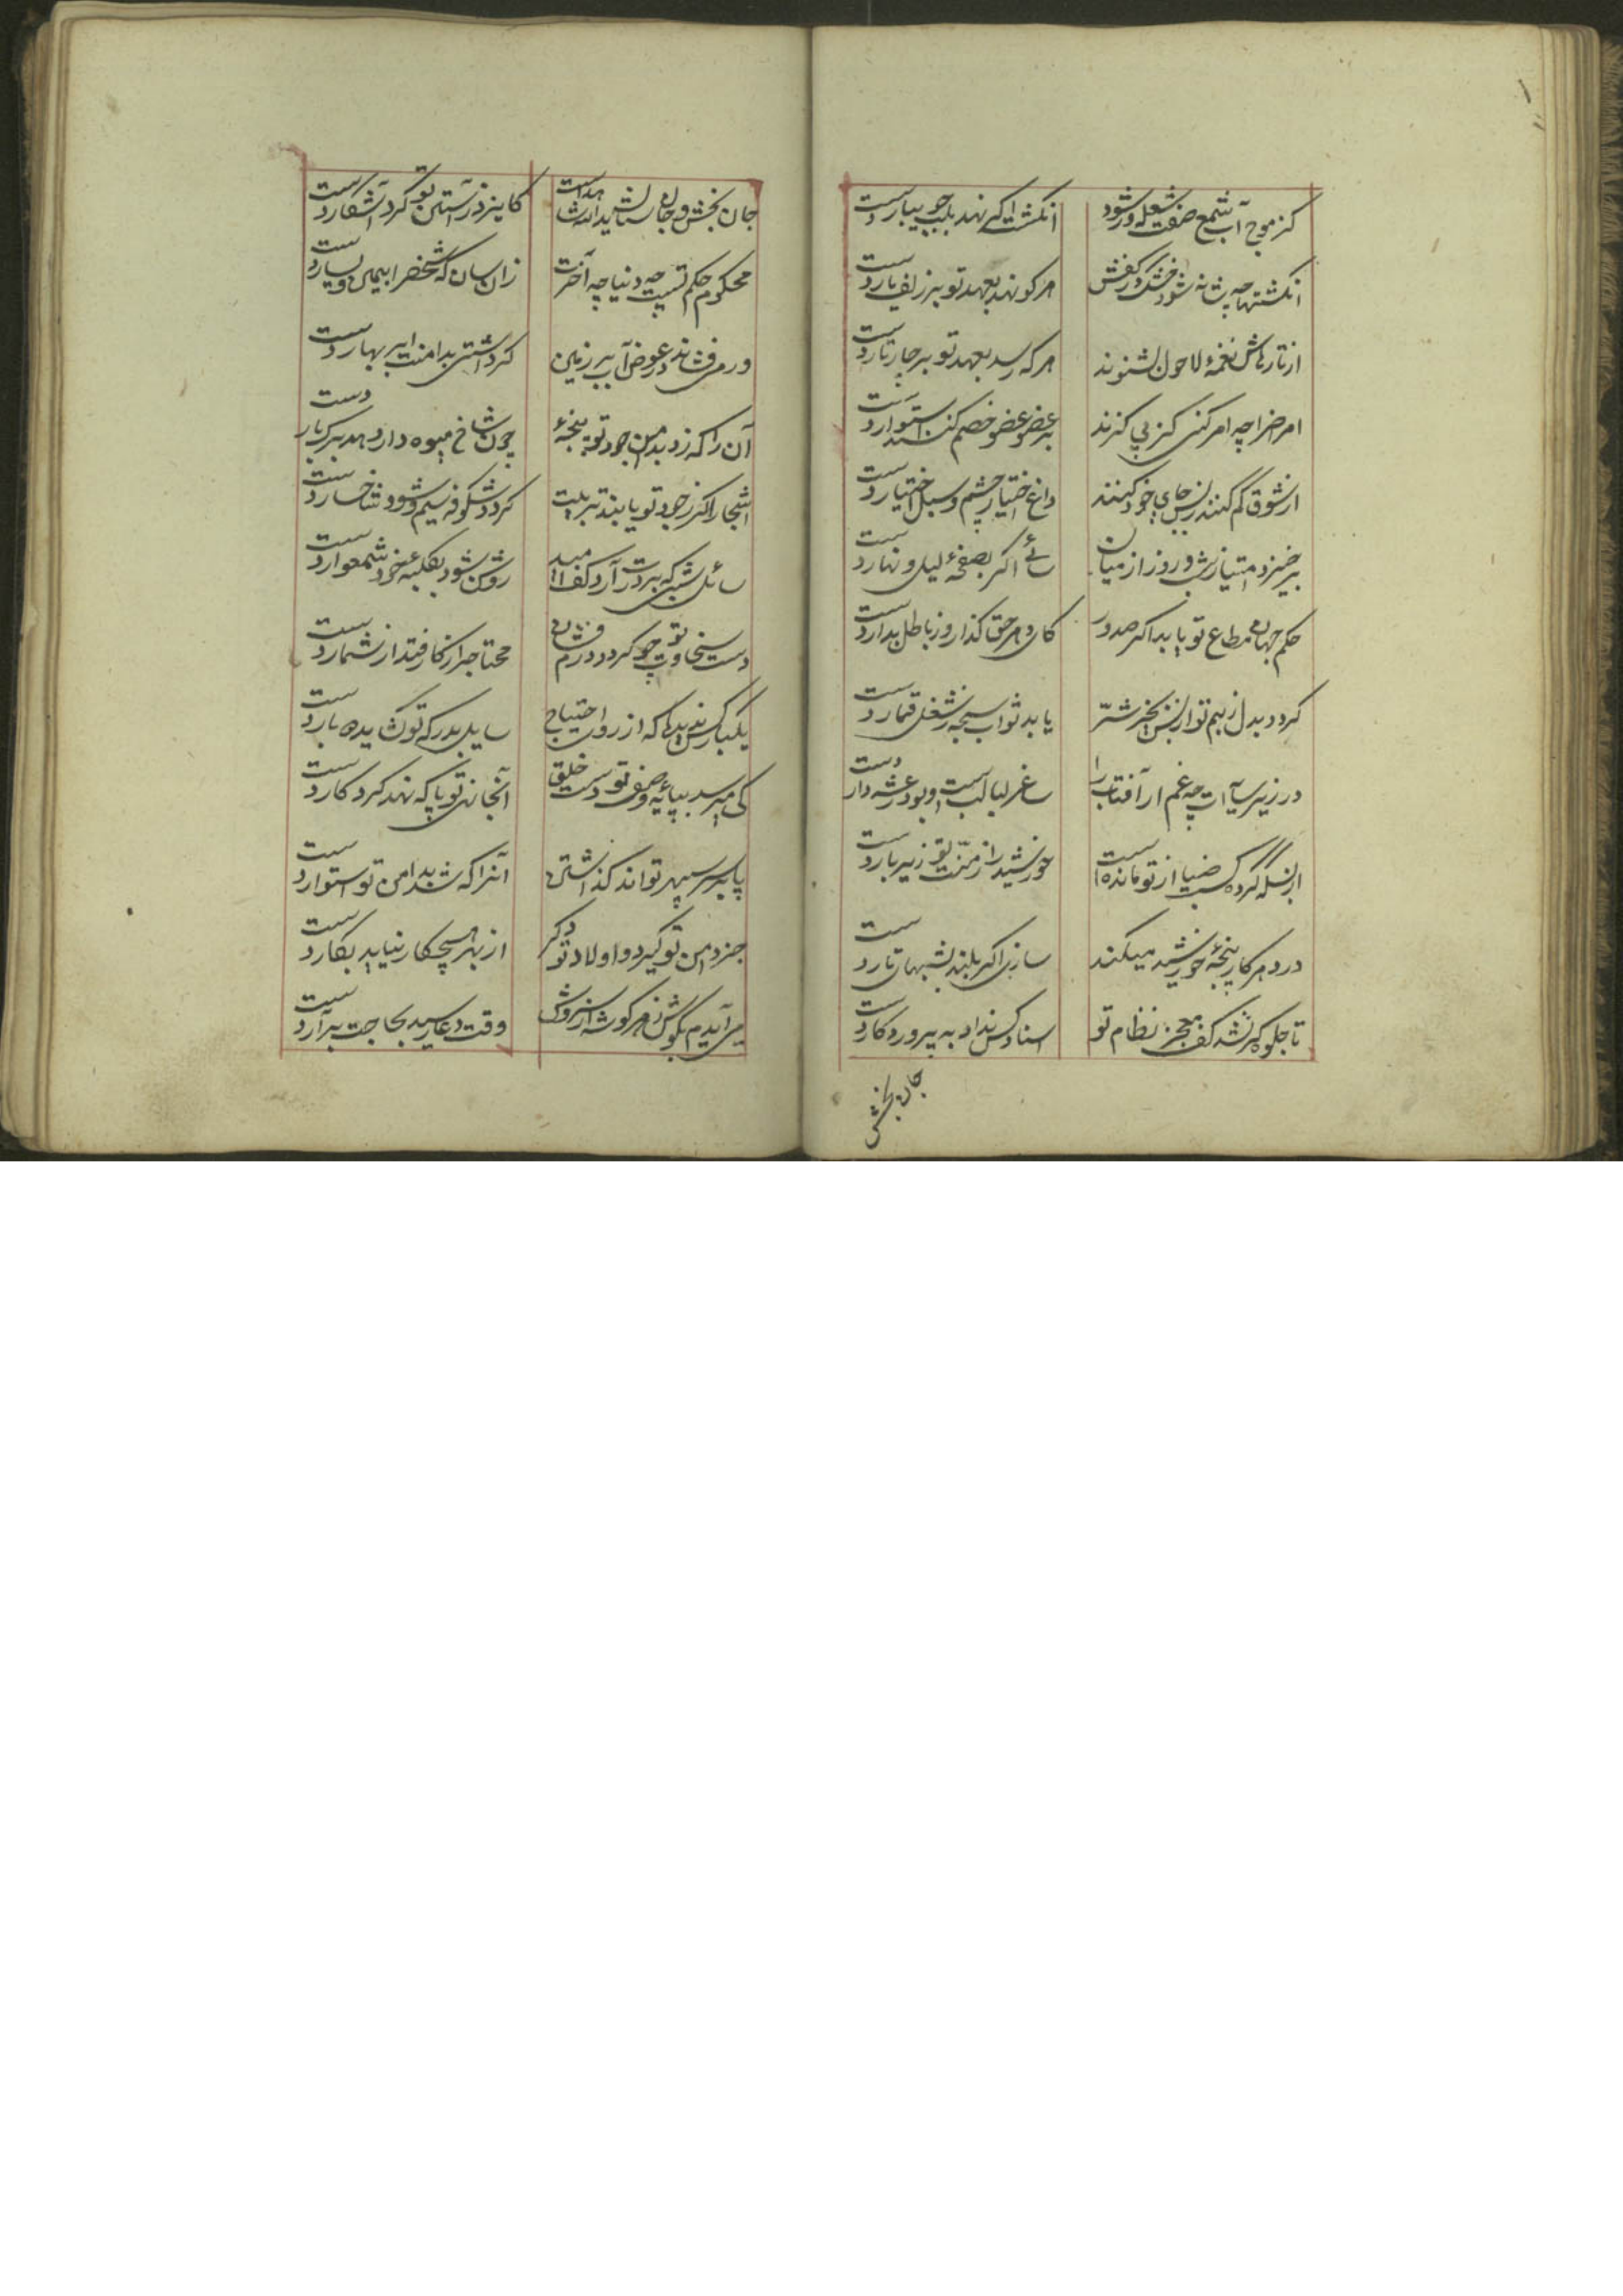 کز موج آب شمع صفت شعله ور شود
انکشت اکر نهد بلب جویبار دست
انکشتها چه شانه شود خشک در کفش
هر کو نهد بعهد تو بر زلف یار دست
از تارهاش نغمهٔ لاحول بشنوند
هر که رسد بعهد تو بر چارتار دست
امراض را چه امر کنی کز پی کزند
بر عضو عضو خصم کنند استوار دست
از شوق کم کنند ز بس جای خود کنند
داغ اختیار چشم و سبل اختیار دست
برخیزد امتیاز شب و روز از میان
سائی اکر بصفحهٔ لیل و نهار دست
حکم جهان مطاع تو یابد اکر صدور
کای دهر حق کذار و ز باطل بدار دست
کردد بدل ز بیم تو از بس بخیر شرّ
یابد ثواب سبحه ز شغل قمار دست
در زیر سآیه ات چه غم ار آفتاب را
ساغر لبالب است و بود رعشه دار دست
از بسکه کرده کسب ضیا از تو مانده است
خورشید را ز منّت تو زیر بار دست
در دهر کار پنجهٔ خورشید میکند
سازی اکر بلند بشبهای تار دست
تا جلوه کر نشد کف معجز نظام تو
اسناد کس نداد به پروردکار دست
جان بخش
جان بخش و جان ستان ید الله شاهد است
کایزد ز آستین تو کرد آشکار دست
محکوم حکم تست چه دنیا چه آخرت
زان سان که شخص را یمین و یسار دست
در می فشاند در عوض آب بر زمین
کر داشتی بدامنت ابر بهار دست
آن را که زد بدامن جود تو پنجهٔ
چون شاخ میوه دار دهد برک و بار دست
اشجار اکر ز جود تو یابند تربیت
کردد شکوفه سیم و شود شاخسار دست
سائل شبی که بر درت آرد کف امید
روشن شود بکلبه خود شمعوار دست
دست سخاوت تو چو کردد درم فشان
محتاج را ز کار فتد از شمار دست
یکبار کس ندید که از روی احتیاج
سایل بدرکه تو کشاید دو بار دست
کی میرسد بپایهٔ وصف تو دست خلق
آنجا نهی تو پا که نهد کردکار دست
پا بر سر سپهر تواند کذاشتن
آنرا که شد بدامن تو استوار دست
جز دامن تو کیرد و اولاد تو دکر
از بهر هیچ کار نیاید بکار دست
می آیدم بکوش ز هر کوشه از سروش
وقت دعا رسید بحاجت برآر دست